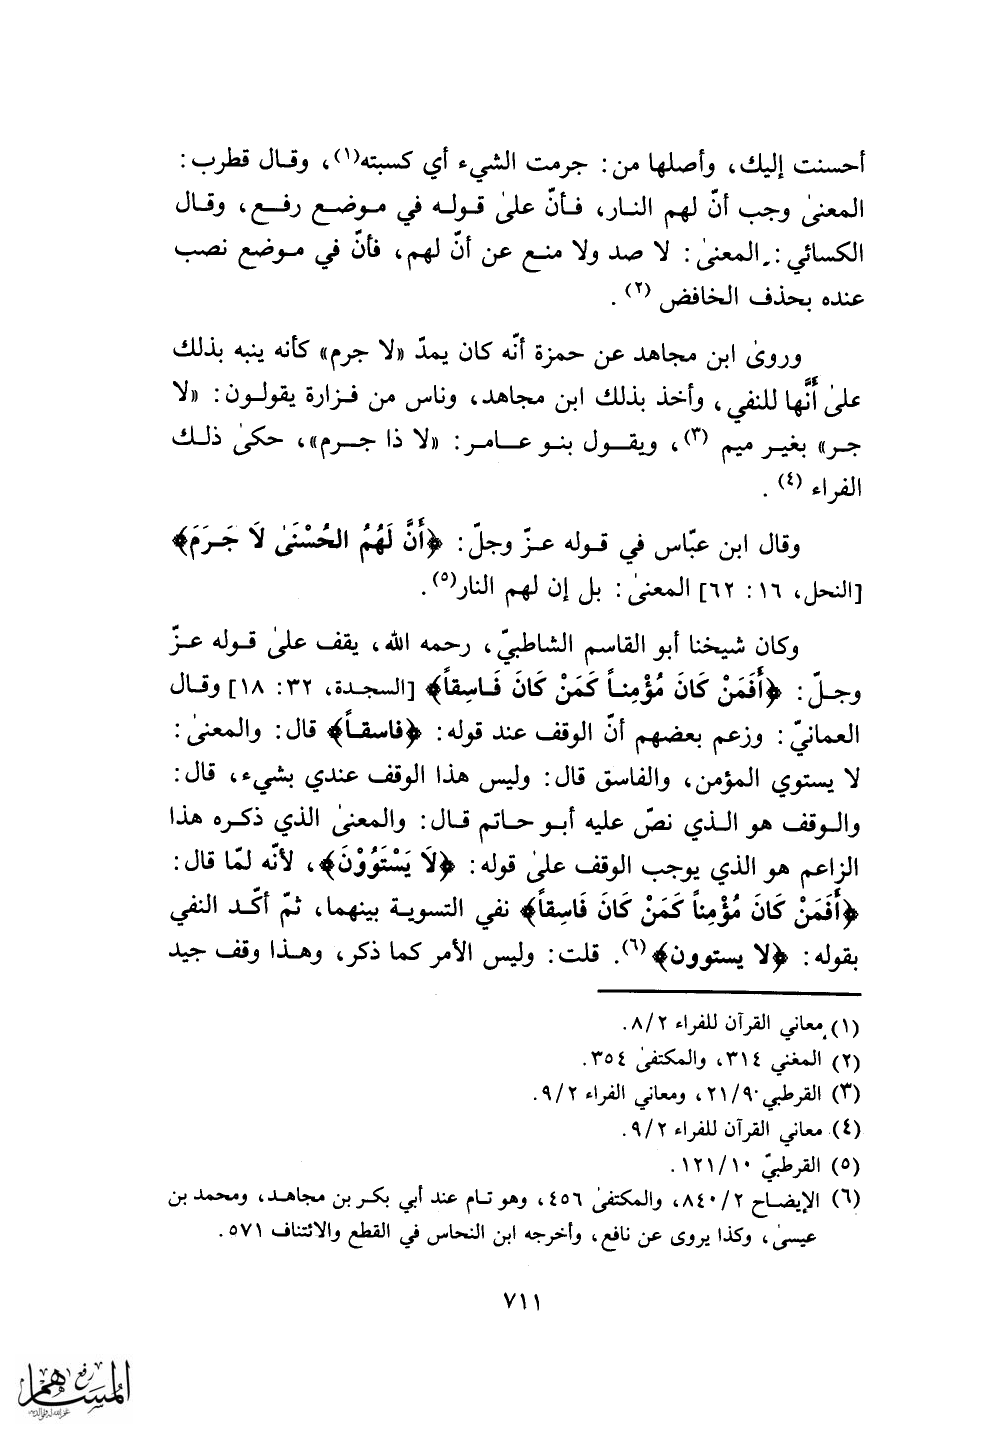 أحسنت إليك، وأصلها من: جرمت الشيء أي كسبته(١)، وقال قطرب:
المعنىٰ وجب أنّ لهم النار، فأنّ علىٰ قوله في موضع رفع، وقال
الكسائي: المعنىٰ: لا صد ولا منع عن أنّ لهم، فأنّ في موضع نصب
عنده بحذف الخافض (٢).
وروىٰ ابن مجاهد عن حمزة أنّه كان يمدّ «لا جرم» كأنه ينبه بذلك
علىٰ أَنَّها للنفي، وأخذ بذلك ابن مجاهد، وناس من فزارة يقولون: «لا
جر» بغير ميم (٣)، ويقول بنو عامر: «لا ذا جرم»، حكىٰ ذلك
الفراء (٤).
وقال ابن عبّاس في قوله عزّ وجلّ: ﴿أَنَّ لَهُمُ الحُسْنَىٰ لَا جَرَمَ﴾
[النحل، ١٦: ٦٢] المعنىٰ: بل إن لهم النار(٥).
وكان شيخنا أبو القاسم الشاطبيّ، رحمه الله، يقف علىٰ قوله عزّ
وجلّ: ﴿أَفَمَنْ كَانَ مُؤْمِناً كَمَنْ كَانَ فَاسِقاً﴾ [السجدة، ٣٢: ١٨] وقال
العمانيّ: وزعم بعضهم أنّ الوقف عند قوله: ﴿فاسقاً﴾ قال: والمعنىٰ:
لا يستوي المؤمن، والفاسق قال: وليس هذا الوقف عندي بشيء، قال:
والوقف هو الذي نصّ عليه أبو حاتم قال: والمعنىٰ الذي ذكره هذا
الزاعم هو الذي يوجب الوقف علىٰ قوله: ﴿لَا يَسْتَوُوْنَ﴾، لأنّه لمّا قال:
﴿أَفَمَنْ كَانَ مُؤْمِناً كَمَنْ كَانَ فَاسِقاً﴾ نفي التسوية بينهما، ثمّ أكّد النفي
بقوله: ﴿لا يستوون﴾ (٦). قلت: وليس الأمر كما ذكر، وهذا وقف جيد
(١) معاني القرآن للفراء ٨/٢.
(٢) المغني ٣١٤، والمكتفىٰ ٣٥٤.
(٣) القرطبي ٢١/٩، ومعاني الفراء ٩/٢.
(٤) معاني القرآن للفراء ٩/٢.
(٥) القرطبيّ ١٢١/١٠.
(٦) الإيضاح ٨٤٠/٢، والمكتفىٰ ٤٥٦، وهو تام عند أبي بكر بن مجاهد، ومحمد بن
عيسىٰ، وكذا يروى عن نافع، وأخرجه ابن النحاس في القطع والائتناف ٥٧١.
٧١١